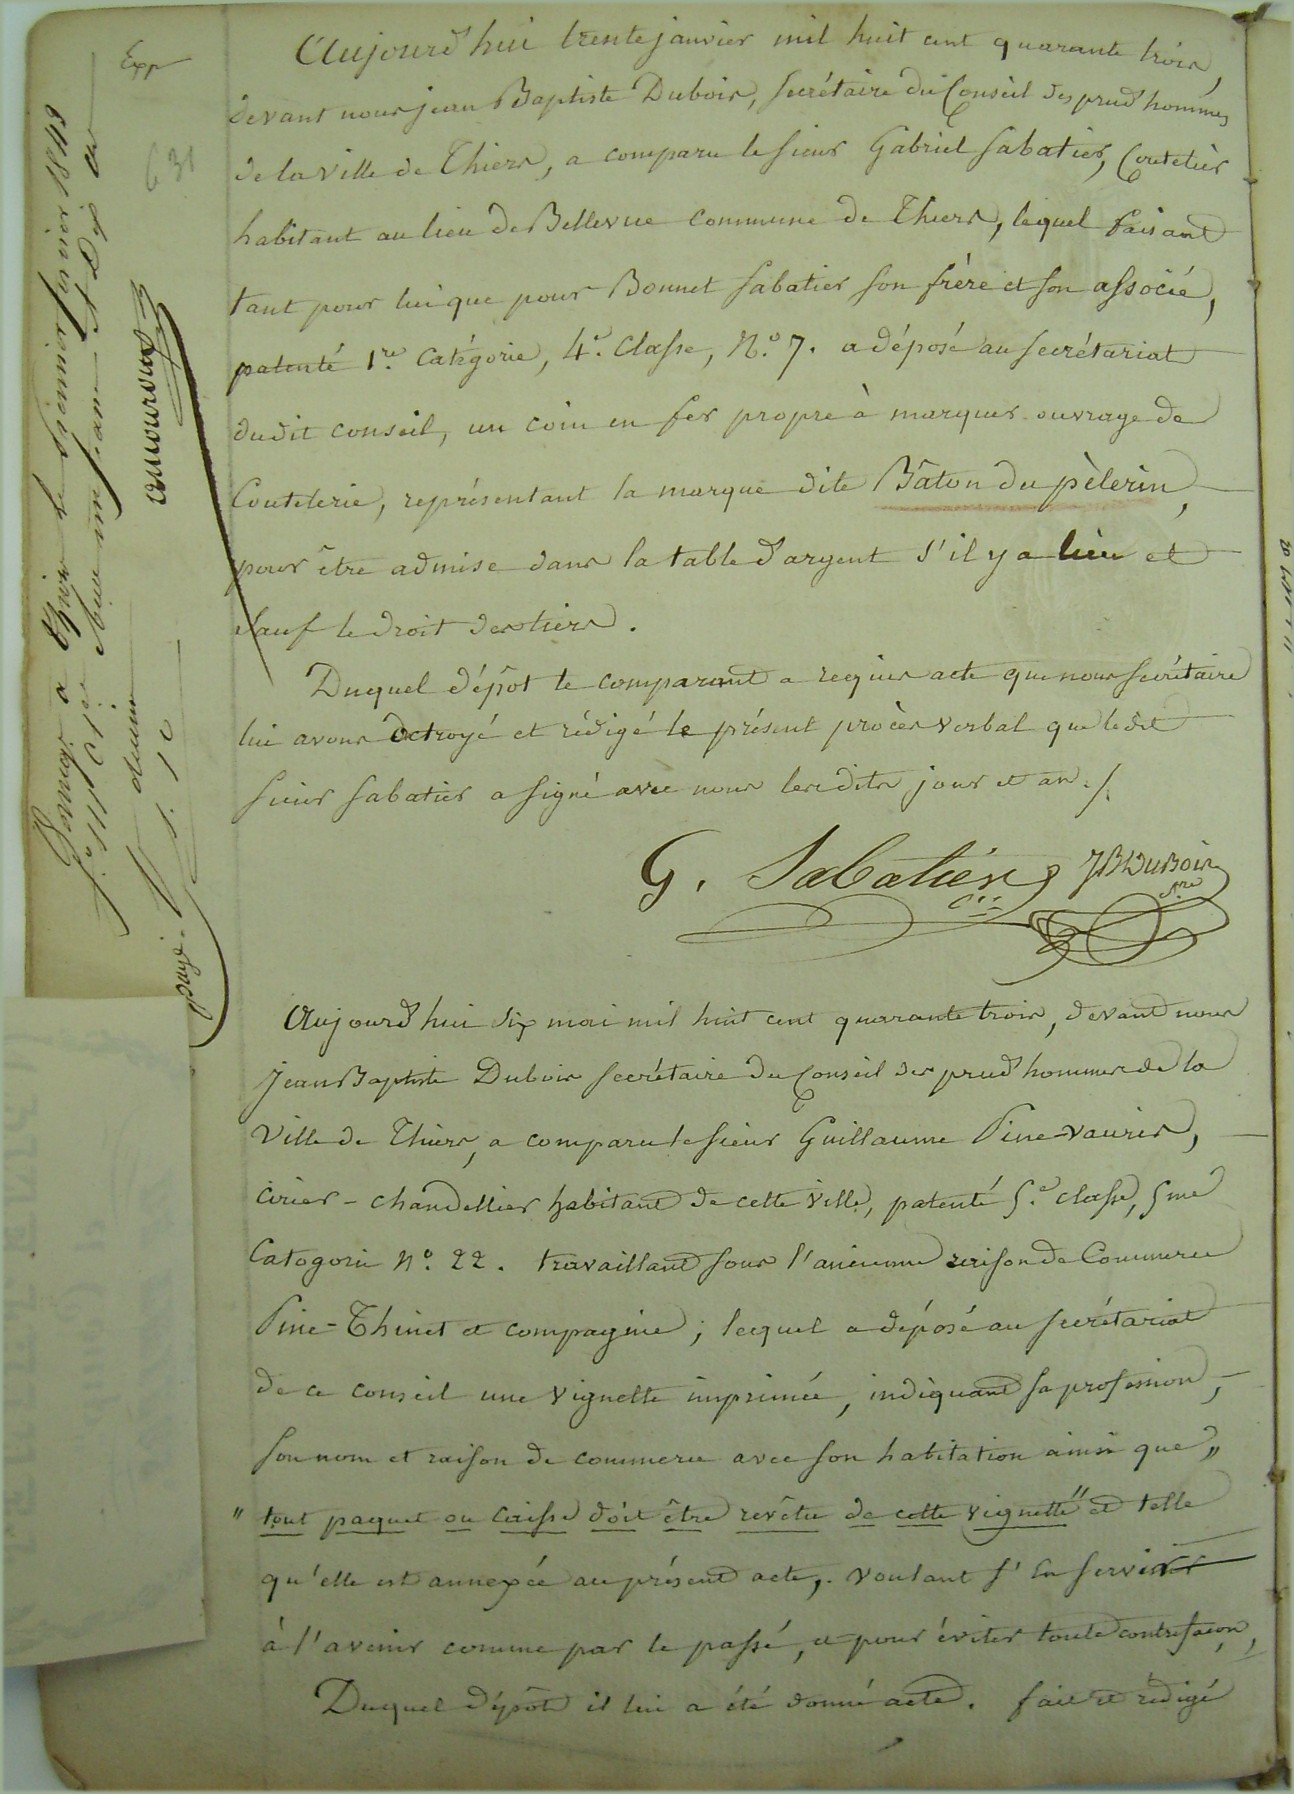 Exp
631
Aujourd'hui trente janvier mil huit cent quarante trois,
devant nous jean Baptiste Dubois, secrétaire du Conseil des prud'hommes
de la ville de Thiers, a comparu le sieur Gabriel Sabatier, Coutelier
habitant au lieu de Bellevue commune de Thiers, lequel faisant
tant pour lui que pour Bonnet Sabatier son frère et son associé,
patenté 1.re Catégorie, 4.e Classe, N.o 7. a déposé au secrétariat
dudit conseil, un coin en fer propre à marquer ouvrage de
Coutelerie, représentant la marque dite Bâton du pèlerin,
pour être admise dans la table d'argent s'il y a lieu et
sauf le droit des tiers.
Duquel dépôt le comparant a requis acte que nous secrétaire
lui avons octroyé et rédigé le présent procès verbal que le dit
sieur Sabatier a signé avec nous lesdits jour et an ./.
G. Sabatier JBtDuBois
S.re
à Thiers le premier février 1843
amouroux
payé.
Aujourd'hui six mai mil huit cent quarante trois, devant nous
Jean Baptiste Dubois secrétaire du Conseil des prud'hommes de la
Ville de Thiers, a comparu le sieur Guillaume Pine-vauris,
cirier - chandellier habitant de cette ville, patenté 5.e classe, 5me
Catogorie N.o 22. travaillant sous l'ancienne raison de Commerce
Pine-Thinet et compagnie; lequel a déposé au secrétariat
de ce conseil une vignette imprimée, indiquant sa profession,
son nom et raison de commerce avec son habitation ainsi que "
" tout paquet ou caisse doit être revêtu de cette vignette" et telle
qu'elle est annexée au présent acte, voulant s'en servir
à l'avenir comme par le passé, et pour éviter toute contrefaçon,
Duquel dépôt il lui a été donné acte. fait et rédigé